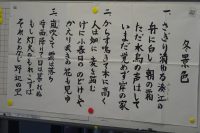 冬景色
一、さぎり消ゆる湊江の
舟に白し 朝の霜
ただ水鳥の声はして
いまだ覚めず 岸の家
二、からす鳴きて木に高く
人は畑に麦を踏む
げに小春日ののどけしや
かえり咲きの花も見ゆ
三、嵐吹きて雲は落ち
時雨降りて日は暮れぬ
もし灯火のもれこずば
それとわかじ 野辺の里